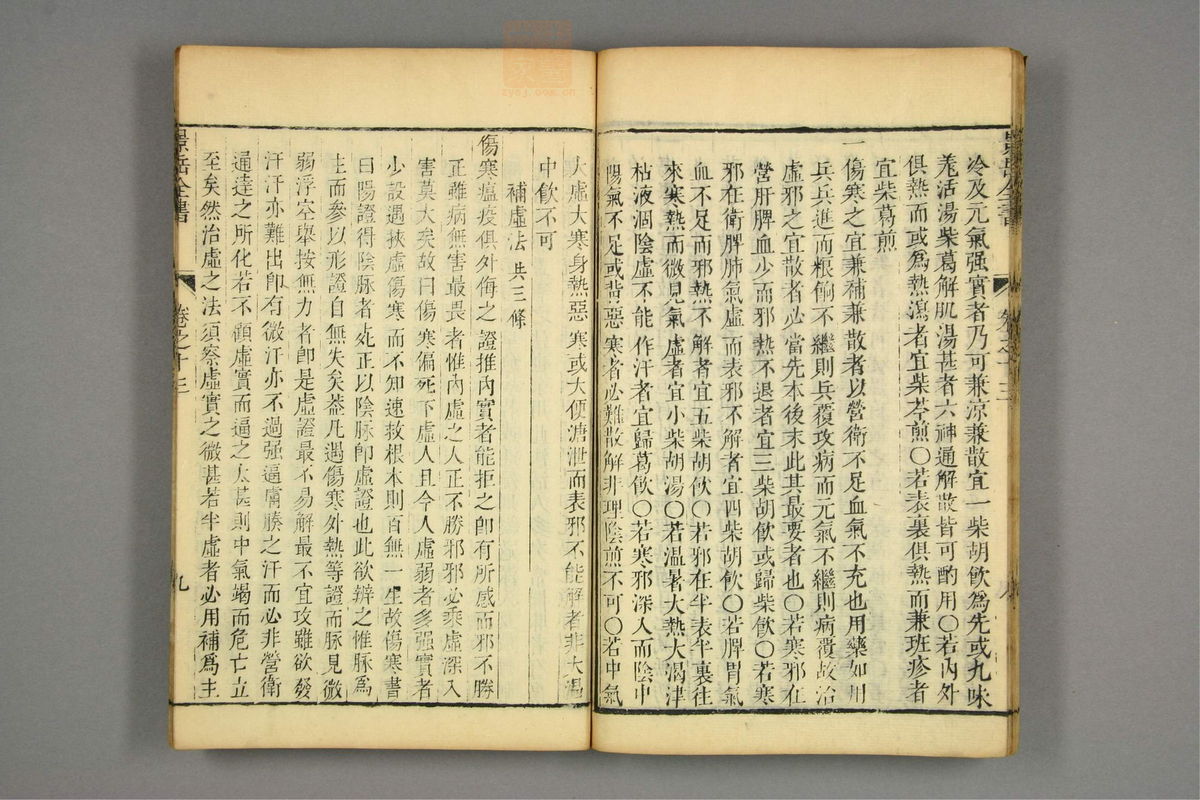 冷及元氣强實者乃可兼涼兼散宜一柴胡飲爲先或九味
羗活湯柴葛解肌湯甚者六神通解散皆可酌用〇若內外
俱熱而或爲熱瀉者宜柴芩煎〇若表裏俱熱而兼班疹者
宜柴葛煎
一傷寒之宜兼補兼散者以營衛不足血氣不充也用藥如用
兵兵進而粮餉不繼則兵覆攻病而元氣不繼則病覆故治
虛邪之宜散者必當先本後末此其最要者也〇若寒邪在
營肝脾血少而邪熱不退者宜三柴胡飲或歸柴飲〇若寒
邪在衛脾肺氣虛而表邪不解者宜四柴胡飲〇若脾胃氣
血不足而邪熱不解者宜五柴胡飲〇若邪在半表半裏往
來寒熱而微見氣虛者宜小柴胡湯〇若溫暑大熱大渴津
枯液涸陰虛不能作汗者宜歸葛飲〇若寒邪深入而陰中
陽氣不足或背惡寒者必難散解非理陰煎不可〇若中氣
景岳全書
卷之十三
九
大虛大寒身熱惡寒或大便溏泄而表邪不能解者非大温
中飲不可
補虛法 共三條
傷寒瘟疫俱外侮之證推內實者能拒之卽有所感而邪不勝
正雖病無害最畏者惟內虛之人正不勝邪邪必乘虛深入
害莫大矣故曰傷寒偏死下虛人且今人虛弱者多强實者
少設遇挾虛傷寒而不知速救根本則百無一生故傷寒書
曰陽證得陰脉者死正以陰脉卽虛證也此欲辯之惟脉爲
主而參以形證自無失矣葢凡遇傷寒外熱等證而脉見微
弱浮空舉按無力者卽是虛證最不易解最不宜攻雖欲發
汗汗亦難出卽有微汗亦不過强逼膚腠之汗而必非營衛
通達之所化若不顧虛實而逼之太甚則中氣竭而危亡立
至矣然治虛之法須察虛實之微甚若半虛者必用補爲主